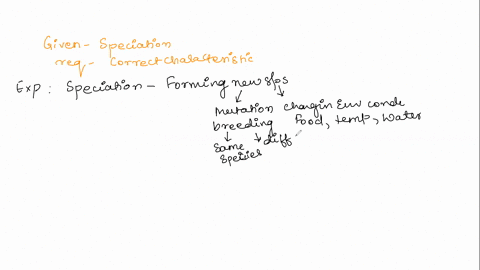 Given - Speciation
req - Correct characteristic
Exp : Speciation - Forming new sps
Mutation changin Env conde
breeding Food, temp, water
Same diff
species